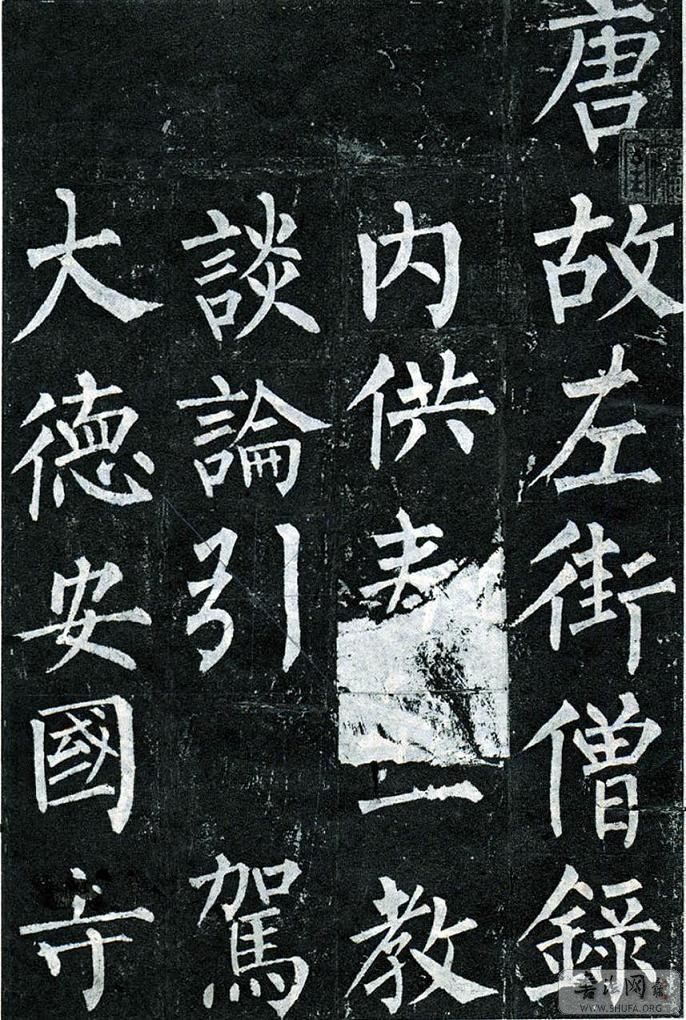 唐故左街僧錄
内供教
談論引駕
大德安國寺
书法网
WWW.SHUFA.ORG